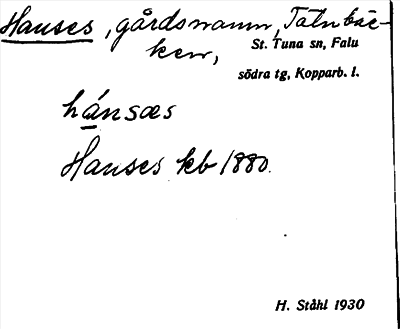 Hanses, gårdsnamn, Tätnbäc-
ken,
St. Tuna sn, Falu
södra tg, Kopparb. l.
hánsæs
Hanses kb 1880.
H. Ståhl 1930